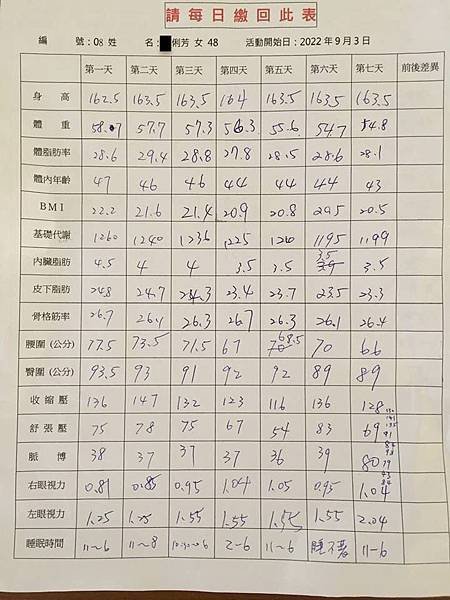 請每日繳回此表
編 號：08 姓 名： 俐芳 女 48 活動開始日：2022年9月3日
第一天 第二天 第三天 第四天 第五天 第六天 第七天 前後差異
身高 162.5 163.5 163.5 164 163.5 163.5 163.5
體重 57.7 57.3 56.3 55.6 54.7 54.8
體脂肪率 28.6 29.4 28.8 27.8 28.5 28.6 28.1
體內年齡 47 46 46 44 44 44 43
BMI 22.2 21.6 21.4 20.9 20.8 20.5
基礎代謝 1260 1240 1236 1225 1195 1199
內臟脂肪 4.5 4 4 3.5 3.5 3.5 3.5
皮下脂肪 24.8 24.7 24.3 23.4 23.7 23.5 23.3
骨格筋率 26.7 26.1 26.3 26.7 26.3 26.1 26.4
腰圍(公分) 77.5 73.5 71.5 67 70 68.5 70 66
臀圍(公分) 93.5 93 91 92 92 89 89
收縮壓 136 147 132 123 116 136 128
舒張壓 75 78 75 67 54 83 69
脈博 38 37 37 37 36 39 80
右眼視力 0.81 0.85 0.95 1.04 1.05 0.95 1.04
左眼視力 1.25 1.25 1.55 1.55 1.55 1.55 2.04
睡眠時間 11~6 11~8 2-6 11~6 睡不著 11-6